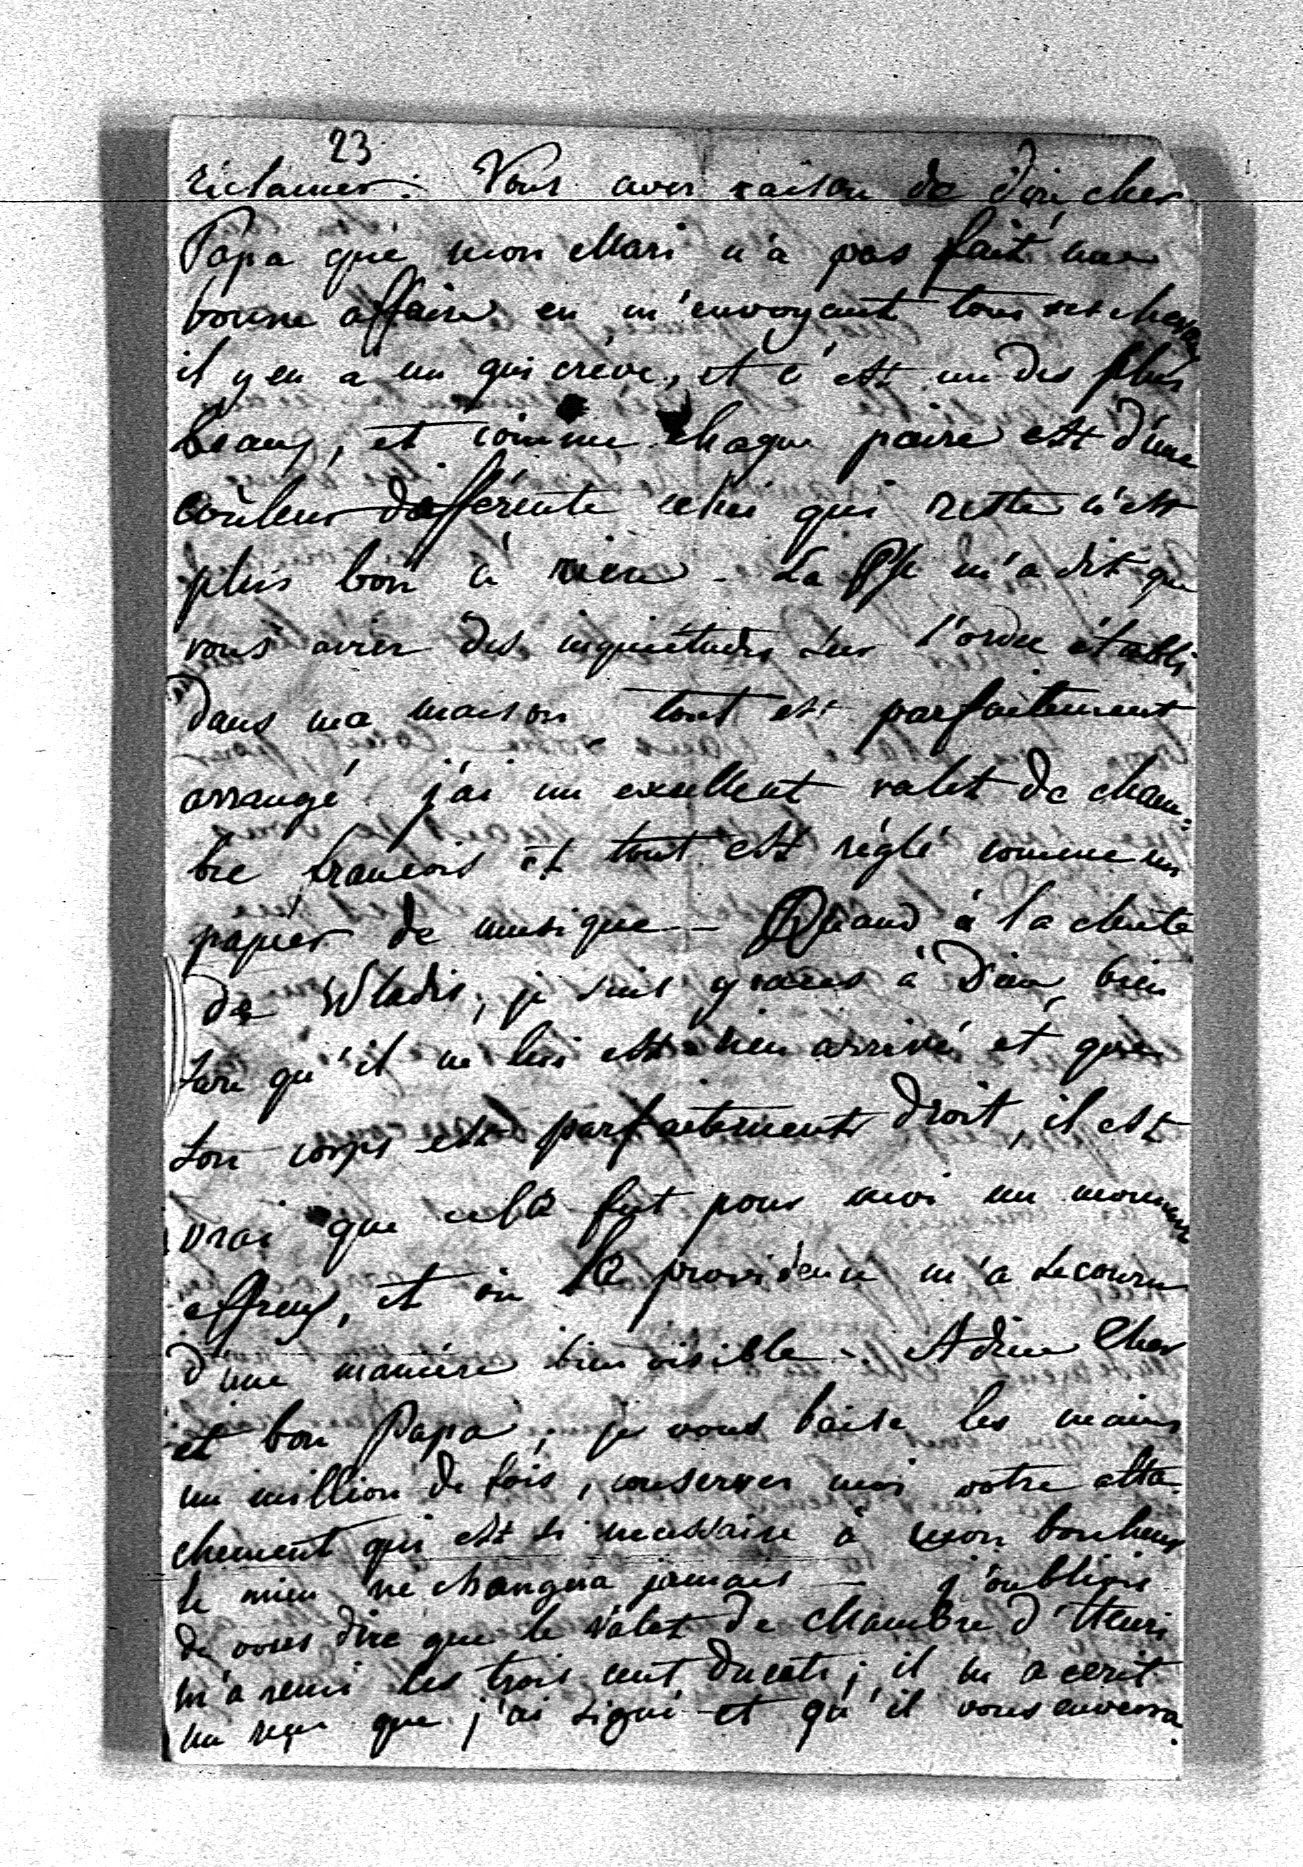 23
réclamer. Vous avez raison de dire cher
Papa que mon Mari n'a pas fait une
bonne affaire en m'envoyant tous ses chevaux
il y en a un qui crève, et c'est un des plus
beaux, et comme chaque paire est d'une
couleur différente celui qui reste n'est
plus bon à rien - La Psse m'a dit que
vous aviez des inquiétudes sur l'ordre établi
dans ma maison tout est parfaitement
arrangé j'ai un excellent valet de cham-
bre françois et tout est réglé comme un
papier de musique - Quand à la chute
de Wladis, je suis graces à Dieu bien
sure qu'il ne lui est rien arrivé et que
son corps est parfaitement droit, il est
vrai que cela fut pour moi un moment
affreux, et où la providence m'a secouru
d'une manière bien visible - Adieu Cher
et bon Papa, je vous baise les mains
un million de fois, conservez moi votre atta-
chement qui est si necessaire à mon bonheur
le mien ne changera jamais - j'oubliois
de vous dire que le valet de chambre d'Henri
m'a remis les trois cent ducats; il m'a ecrit
un reçu que j'ai signé et qu'il vous enverra.